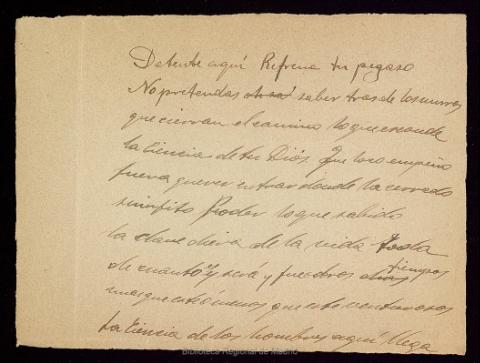 Detente aquí Refrena tu pegaso
No pretendas saber tras de los muros
que cierran el camino lo que esconde
la Ciencia de tu Dios. Que loco empeño
fuera querer entrar donde ha cerrado
su infinito Poder lo que sabido
la clave diera de la vida toda
de cuanto es y será y fue otros tiempos
mas que este
La Ciencia de los hombres aquí llega
Biblioteca Regional de Madrid